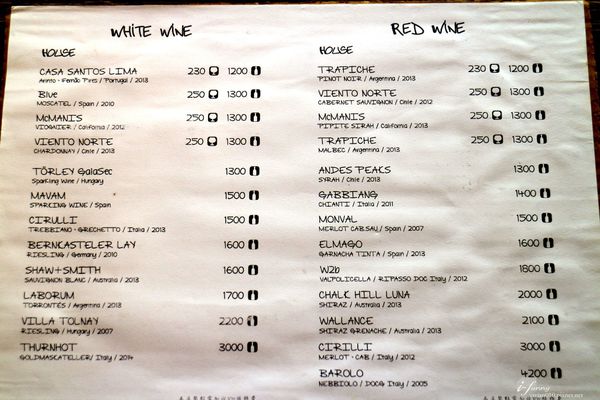 WHITE WINE
HOUSE
CASA SANTOS LIMA 230 1200
Arinto - Fernão Pires / Portugal / 2013
Blue 250 1300
MOSCATEL / Spain / 2010
McMANIS 250 1300
VIOGNIER / California / 2012
VIENTO NORTE 250 1300
CHARDONNAY / Chile / 2013
TÖRLEY GalaSec 1300
Sparkling Wine / Hungary
MAVAM 1500
SPARKING WINE / Spain
CIRULLI 1500
TREBBIANO - GRECHETTO / Italia / 2013
BERNKASTELER LAY 1600
RIESLING / Germany / 2010
SHAW+SMITH 1600
SAUVIGNON BLANC / Australia / 2013
LABORUM 1700
TORRONTÉS / Argentina / 2013
VILLA TOLNAY 2200
RIESLING / Hungary / 2007
THURNHOT 3000
GOLDMASCATELLER / Italy / 2014
RED WINE
HOUSE
TRAPICHE 230 1200
PINOT NOIR / Argentina / 2013
VIENTO NORTE 250 1300
CABERNET SAUVIGNON / Chile / 2012
McMANIS 250 1300
PIPITE SIRAH / California / 2013
TRAPICHE 250 1300
MALBEC / Argentina / 2013
ANDES PEAKS 1300
SYRAH / Chile / 2013
GABBIANG 1400
CHIANTI / Italia / 2011
MONVAL 1500
MERLOT CAB.SAU / Spain / 2007
ELMAGO 1600
GARNACHA TINTA / Spain / 2013
W2b 1800
VALPOLICELLA / RIPASSO DOC Italy / 2012
CHALK HILL LUNA 2000
SHIRAZ / Australia / 2013
WALLANCE 2100
SHIRAZ GRENACHE / Australia / 2013
CIRILLI 3000
MERLOT - CAB / Italy / 2012
BAROLO 4200
NEBBIOLO / DOCG Italy / 2005